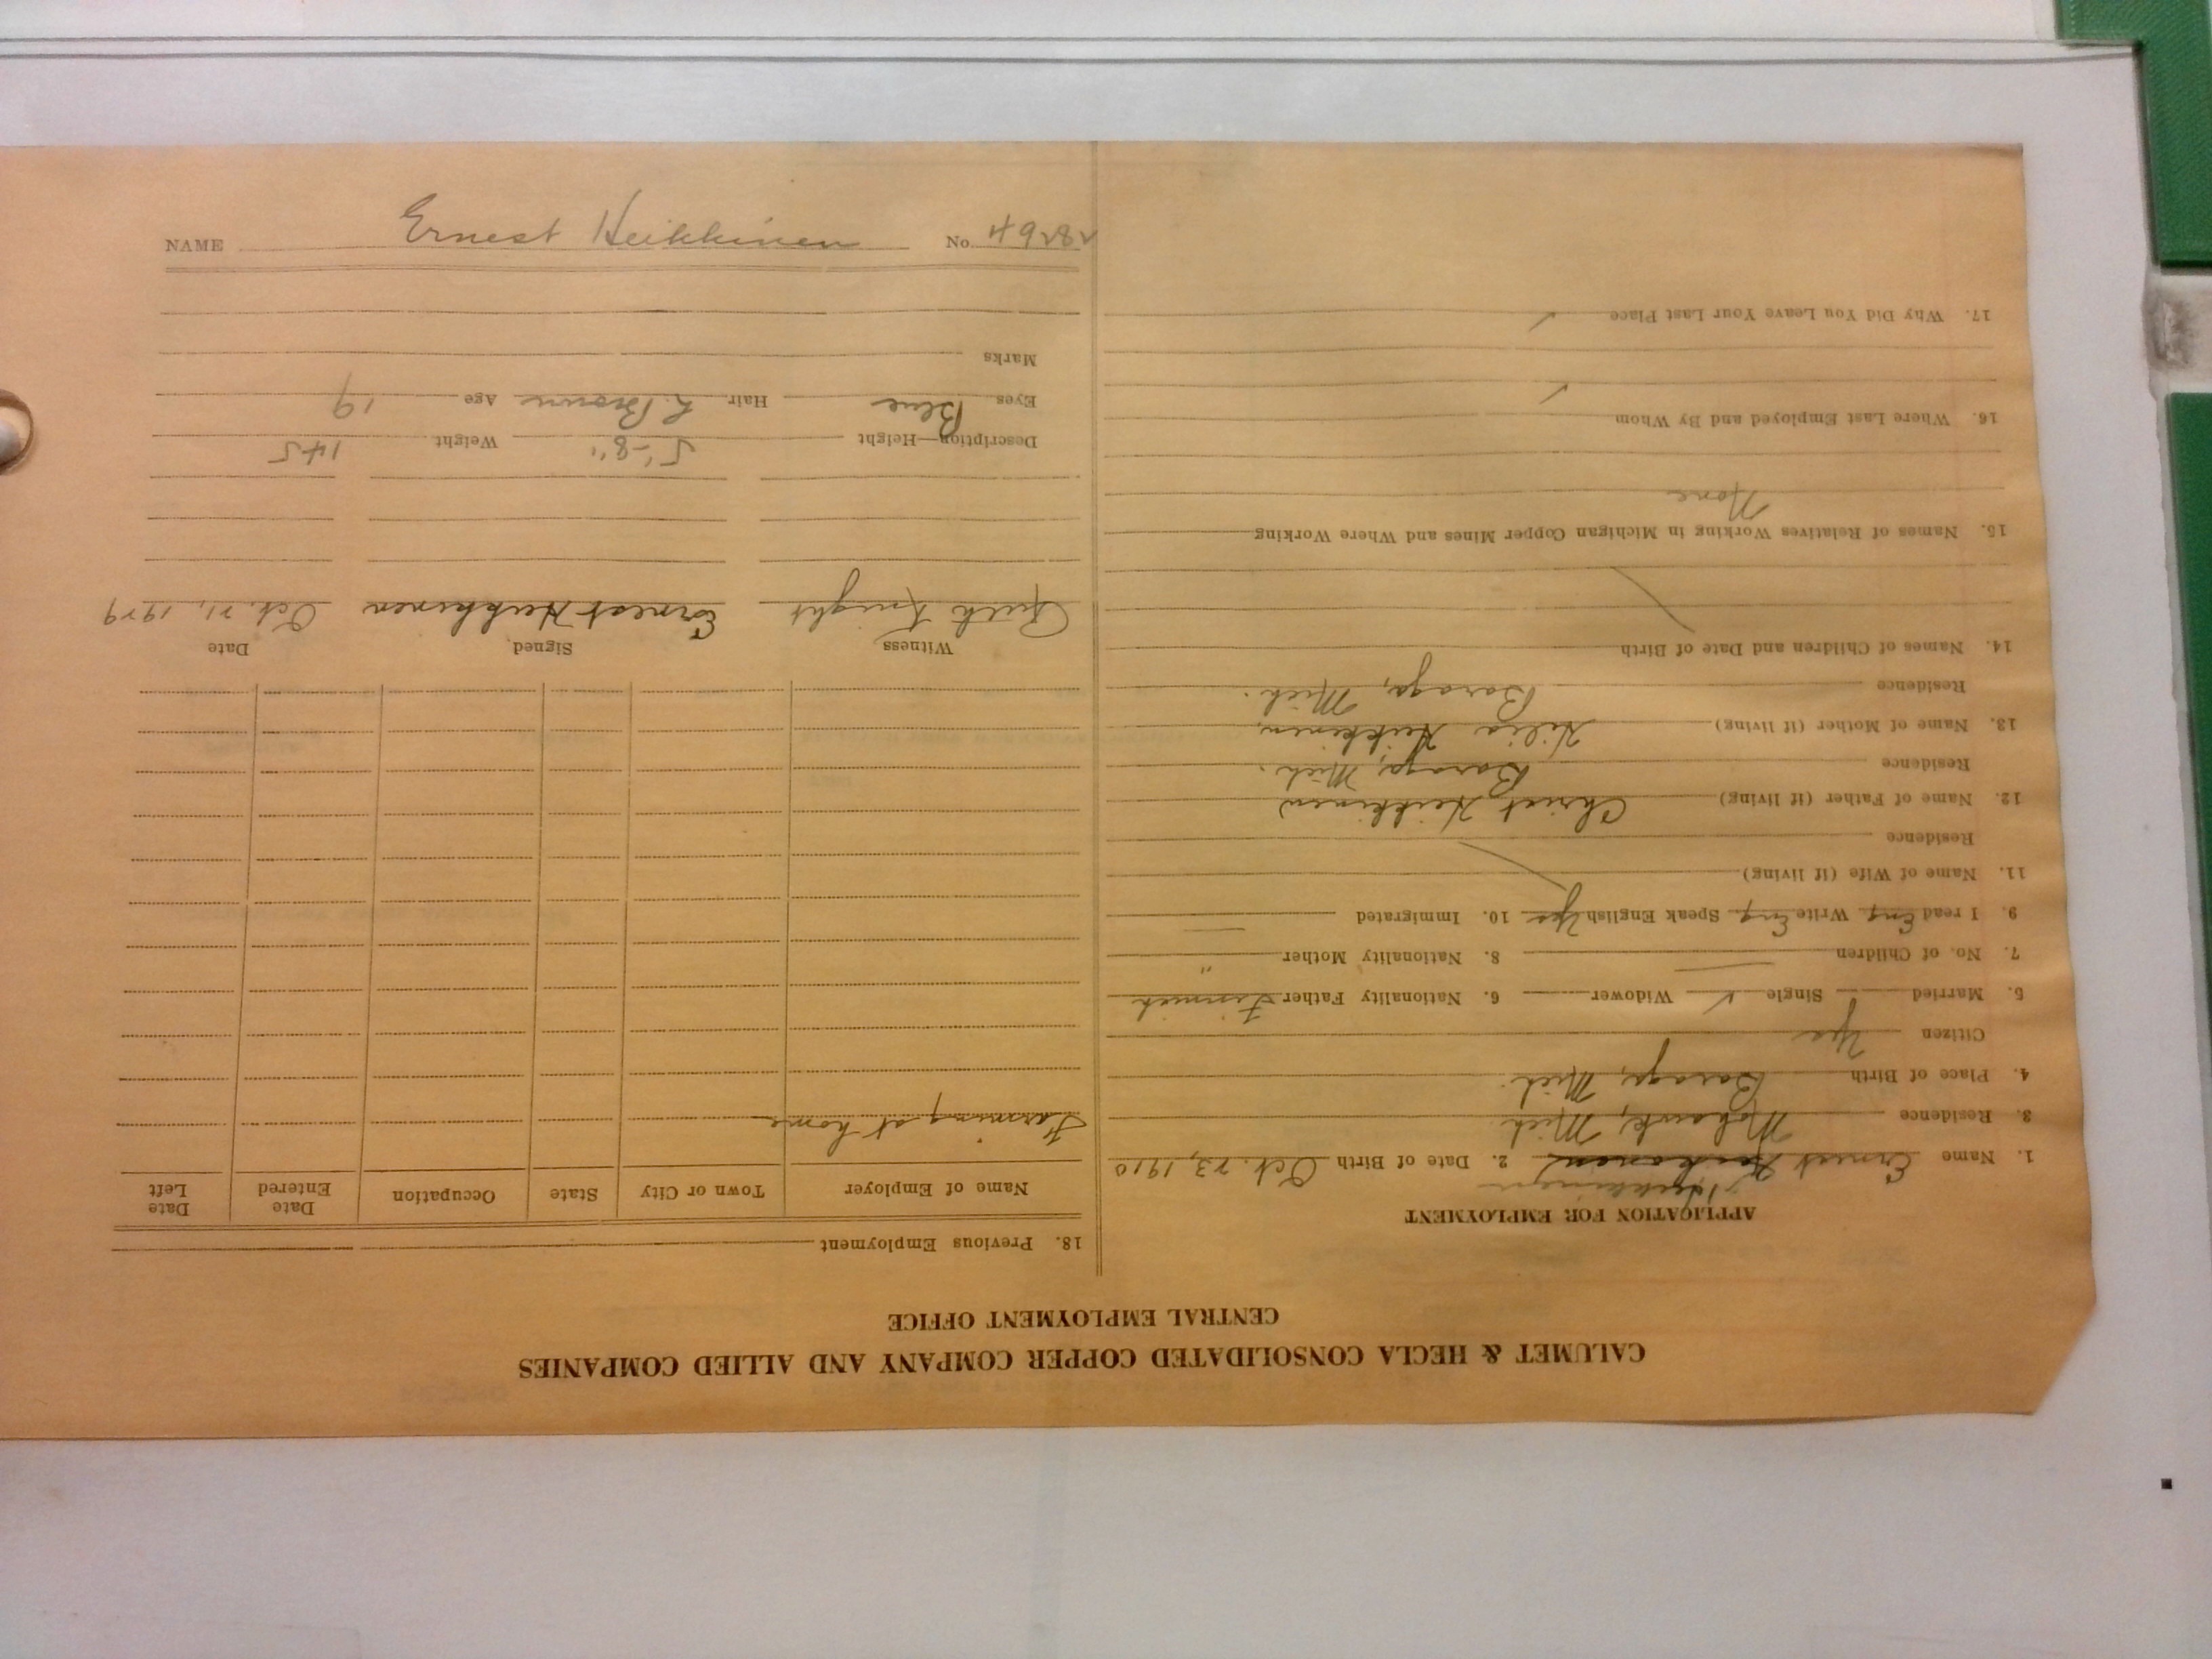 CALUMET & HECLA CONSOLIDATED COPPER COMPANY AND ALLIED COMPANIES
CENTRAL EMPLOYMENT OFFICE
APPLICATION FOR EMPLOYMENT
Heikkinen
1. Name Ernest 2. Date of Birth Oct. 23, 1910
3. Residence Mohawk, Mich
4. Place of Birth Baraga, Mich.
Citizen Yes
5. Married Single ✓ Widower 6. Nationality Father Finnish
7. No. of Children — 8. Nationality Mother "
9. I read Eng Write Eng Speak English Yes 10. Immigrated —
11. Name of Wife (if living)
Residence
12. Name of Father (if living) Christ Heikkinen
Residence Baraga, Mich.
13. Name of Mother (if living) Hilia Heikkinen,
Residence Baraga, Mich.
14. Names of Children and Date of Birth
15. Names of Relatives Working in Michigan Copper Mines and Where Working
None
16. Where Last Employed and By Whom
✓
17. Why Did You Leave Your Last Place ✓
18. Previous Employment
Name of Employer Town or City State Occupation Date Entered Date Left
Farming at home
Witness Signed Date
Knight Ernest Heikkinen Oct. 21, 1929
Description—Height 5'-8" Weight 145
Eyes Blue Hair L. Brown Age 19
Marks
NAME Ernest Heikkinen No. 49282